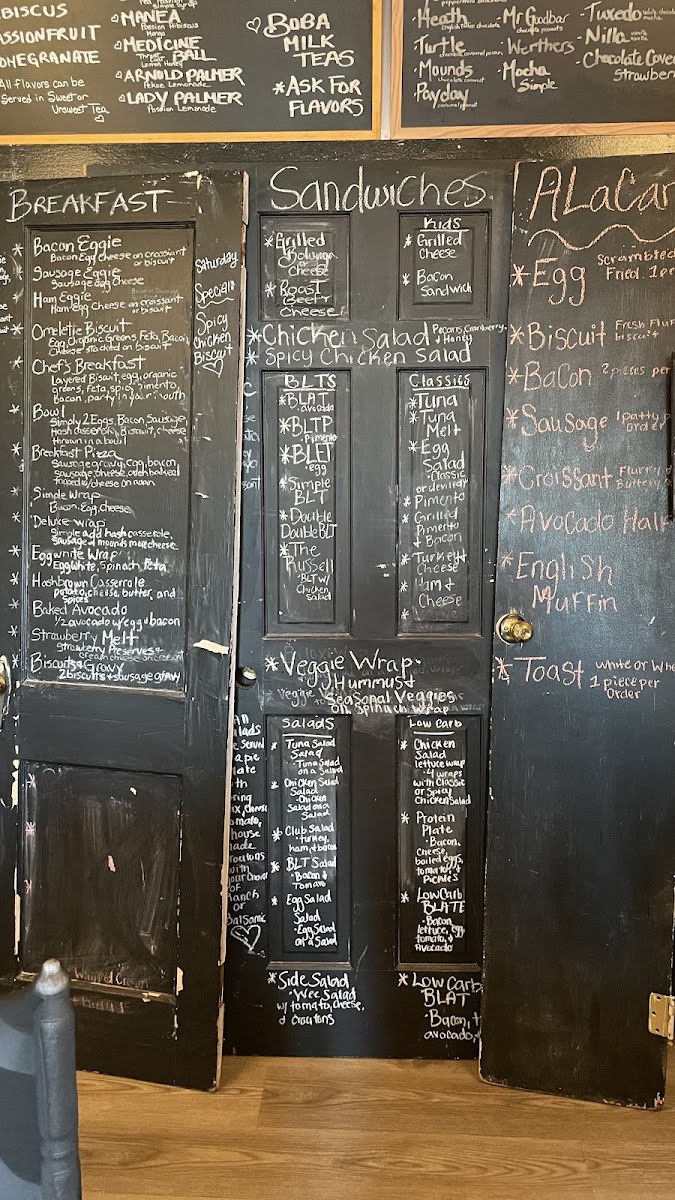 IBISCUS
ASSIONFRUIT
OMEGRANATE
All flavors can be
Served in Sweet or
Unsweet Tea
MANEA
Passion Hibiscus
Mango
MEDICINE
BALL
ARNOLD PALMER
LADY PALMER
Passion Lemonade
BOBA
MILK
TEAS
*ASK FOR
FLAVORS
Heath
Turtle
Mounds
Payday
caramel peanut
Mr Goodbar
Werthers
Mocha
Simple
Tuxedo
Nilla
Chocolate Cove
Strawber
BREAKFAST
* Bacon Eggie
Bacon Egg Cheese on croissant
or biscuit
* Sausage Eggie
Sausage egg cheese
* Ham Eggie
Ham egg cheese on croissant
or biscuit
* Omelette Biscuit
Egg, Organic Greens, Feta, Bacon
Cheese stacked on biscuit
* Chef's Breakfast
Layered Biscuit, egg, organic
greens, feta, spicy pimento,
Bacon, party in your mouth
* Bowl
Simply 2 Eggs Bacon Sausage
Hash casserole, Biscuit, cheese
thrown in a bowl
* Breakfast Pizza
Sausage gravy, egg, bacon,
sausage, cheese, oven baked
topped w/cheese on naan
* Simple Wrap
Bacon, Egg, Cheese
* Deluxe wrap
Simple add hash casserole,
sausage & mounds more cheese
* Eggwhite Wrap
Eggwhite, Spinach, Feta
* Hashbrown Casserole
potato, cheese, butter, and
spices
* Baked Avocado
1/2 avocado w/egg & bacon
* Strawberry Melt
strawberry preserves &
cream cheese on croissant
* Biscuits & Gravy
2 biscuits & sausage gravy
Saturday
Special
Spicy
Chicken
Biscuit
Whipped Cream
Sandwiches
* Grilled
Bologna
or
Cheese
* Roast
Beef &
Cheese
KIDS
* Grilled
Cheese
* Bacon
Sandwich
* Chicken Salad Pecans, Cranberry,
& Honey
* Spicy Chicken Salad
BLTS
*BLAT
· avocado
*BLTP
· Pimento
*BLET
· egg
*Simple
BLT
*Double
Double BLT
*The
Russell
· BLT w/
Chicken
Salad
Classics
*Tuna
*Tuna
Melt
*Egg
Salad
· Classic
or deviled
* Pimento
* Grilled
Pimento
& Bacon
* Turkey &
Cheese
* Ham &
Cheese
*Veggie Wrap·
w/Hummus &
Seasonal Veggies
on Spinach Wrap
All
alads
e served
a pie
late
th
ring
ix, cheese
omato,
house
made
croutons
with
your choice
OF
Ranch
or
Balsamic
SALADS
* Tuna Salad
Salad
· Tuna Salad
on a Salad
* Chicken Salad
Salad
· Chicken
Salad on a
Salad
* Club Salad
· turkey,
ham, & bacon
* BLT Salad
· Bacon &
Tomato
* Egg Salad
Salad
· Egg Salad
on a Salad
Low Carb
* Chicken
Salad
lettuce wrap
· 4 wraps
with Classic
or Spicy
Chicken Salad
* Protein
Plate
· Bacon,
Cheese,
boiled eggs,
tomato, &
Pickles
* Low Carb
BLATE
· Bacon,
lettuce, egg
tomato, &
Avocado
*Side Salad
· Wee Salad
w/ tomato, cheese,
& croutons
*Low Carb
BLAT
· Bacon, t
avocado, &
ALaCar
*Egg Scrambled
Fried. 1 pe
*Biscuit Fresh Fluf
biscuit
*Bacon 2 pieces per
*Sausage 1 patty p
order
*Croissant Flurry &
Buttery
*Avocado Half
*English
Muffin
*Toast White or Whe
1 piece per
order